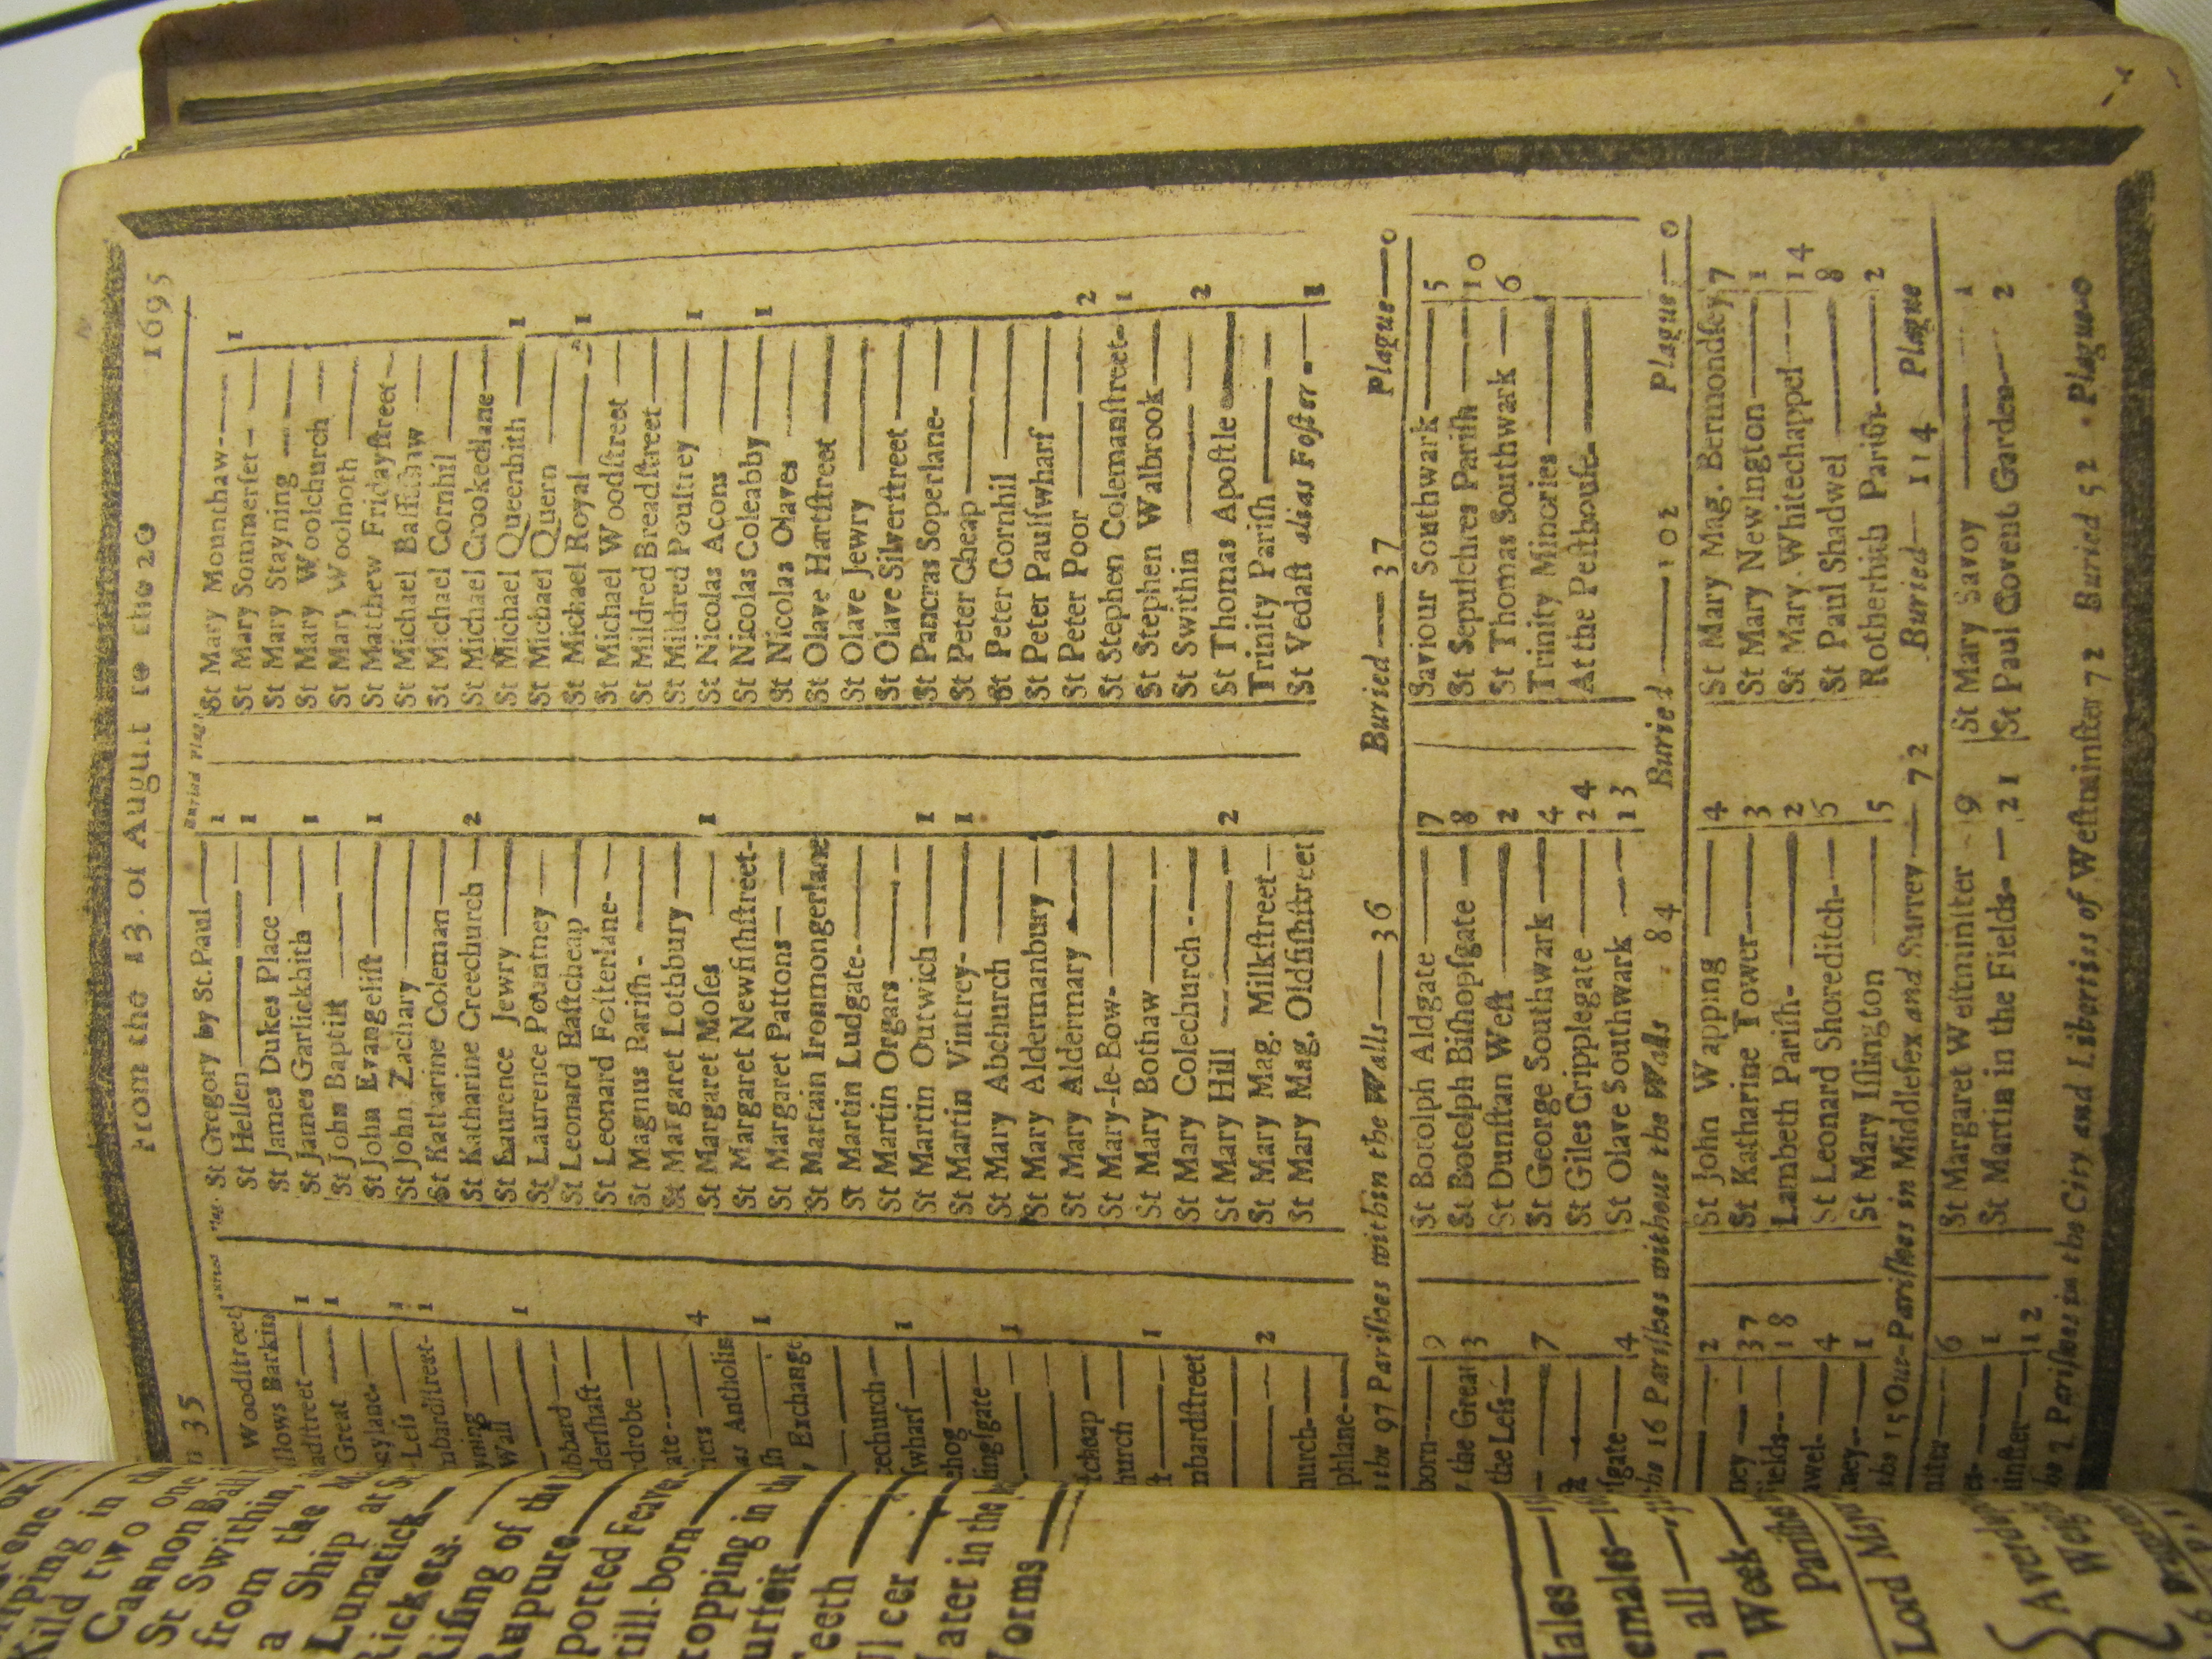 From the 13 of August to the 20 1695
35
Buried Plag.
Woodſtreet
llows Barkin
adſtreet — 1
Great — 1
eylane-
Leſs — 1
mbardſtreet- 1
Wall
1
bbard
derſhaft
drobe
ate
riers — 4
as Antholis
ſh — 1
Exchange
eechurch
ſwharf — 1
ehog
lingſgate
1
tcheap
hurch
1
nbardſtreet
2
hurch
phlane
St Gregory by St. Paul — 1
St Hellen — 1
St James Dukes Place
St James Garlickhith — 1
St John Baptiſt
St John Evangeliſt — 1
St John Zachary
St Katharine Coleman
St Katharine Creechurch — 2
St Laurence Jewry
St Laurence Pountney
St Leonard Eaſtcheap
St Leonard Foſterlane-
St Magnus Pariſh -
St Margaret Lothbury
St Margaret Moſes — 1
St Margaret Newfiſhſtreet-
St Margaret Pattons
St Martain Ironmongerlane
St Martin Ludgate-
St Martin Orgars
St Martin Outwich — 1
St Martin Vintrey- 1
St Mary Abchurch
St Mary Aldermanbury
St Mary Aldermary
St Mary-le-Bow-
St Mary Bothaw
St Mary Colechurch
St Mary Hill — 2
St Mary Mag. Milkſtreet
St Mary Mag. Oldfiſhſtreet
St Mary Mounthaw- 1
St Mary Sommerſet
St Mary Stayning
St Mary Woolchurch
St Mary Woolnoth
St Matthew Fridayſtreet
St Michael Baſſiſhaw
St Michael Cornhil
St Michael Crookedlane
St Michael Queenhith — 1
St Michael Quern
St Michael Royal — 1
St Michael Woodſtreet
St Mildred Breadſtreet
St Mildred Poultrey — 1
St Nicolas Acons
St Nicolas Coleabby — 1
St Nicolas Olaves
St Olave Hartſtreet
St Olave Jewry
St Olave Silverſtreet
St Pancras Soperlane-
St Peter Cheap
St Peter Cornhil
St Peter Paulſwharf
St Peter Poor — 2
St Stephen Colemanſtreet- 1
St Stephen Walbrook
St Swithin — 2
St Thomas Apoſtle
Trinity Pariſh
St Vedaſt alias Foſter — 1
the 97 Pariſhes within the Walls — 36 Buried — 37 Plague — 0
born — 9
the Great 3
the Leſs
7
ſgate — 4
St Botolph Aldgate — 7
St Botolph Biſhopſgate — 8
St Dunſtan Weſt — 2
St George Southwark — 4
St Giles Cripplegate — 24
St Olave Southwark — 13
Saviour Southwark — 5
St Sepulchres Pariſh — 10
St Thomas Southwark — 6
Trinity Minories
At the Peſthouſe
the 16 Pariſhes without the Walls 84 Buried — 102 Plague — 0
ney — 2
37
ields — 18
awel- 4
ney — 1
St John Wapping — 4
St Katharine Tower — 3
Lambeth Pariſh- 2
St Leonard Shoreditch- 5
St Mary Iſlington — 5
St Mary Mag. Bermondſey 7
St Mary Newington — 1
St Mary Whitechappel — 14
St Paul Shadwel — 8
Rotherhith Pariſh — 2
the 15 Out-Pariſhes in Middleſex and Surrey — 72 Buried — 114 Plague
6
1
inſter — 12
St Margaret Weſtminſter 9
St Martin in the Fields — 21
St Mary Savoy — 1
St Paul Covent Garden — 2
he 7 Pariſhes in the City and Liberties of Weſtminſter 72 Buried 52 Plague 0
Kild two
Cannon one
St Swithin
from the
a Ship
Lunatick
Rickets.
Riſing of the
Rupture
potted Feave
till-born
topping in
urfeit
Teeth
Ulcer
ater in the
orms
ales
emales
all
Week
Pariſhe
Lord Mayor
Averdu